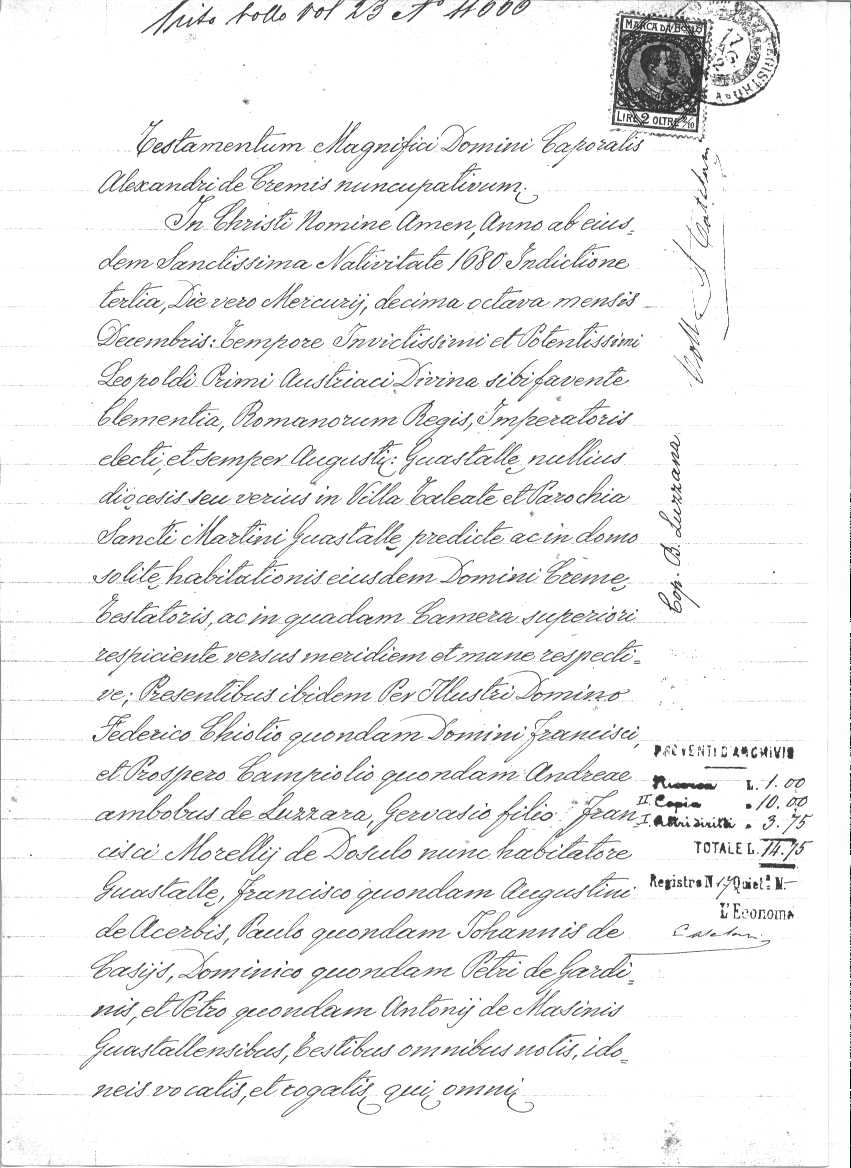 Visto bollo vol 23 N° 4000
MARCA DA BOLLO
LIRE 2 OLTRE 2/10
17
Testamentum Magnifici Domini Caporalis
Alexandri de Cremis nuncupativum.
In Christi Nomine Amen, Anno ab eius=
dem Sanctissima Nativitate 1680 Indictione
tertia, Die vero Mercurij, decima octava mensis
Decembris: Tempore Invictissimi et Potentissimi
Leopoldi Primi Austriaci Divina sibi favente
Clementia, Romanorum Regis, Imperatoris
electi, et semper Augusti: Guastallę nullius
diocesis seu verius in Villa Taleate et Parochia
Sancti Martini Guastallę predicte ac in domo
solitę habitationis eiusdem Domini Cremę
Testatoris, ac in quadam Camera superiori
respiciente versus meridiem et mane respecti=
ve; Presentibus ibidem Per Illustri Domino
Federico Chiotio quondam Domini Francisci,
et Prospero Campiolio quondam Andreae
ambobus de Luzzara, Gervasio filio Fran
cisci Morellij de Dosulo nunc habitatore
Guastallę, Francisco quondam Augustini
de Acerbis, Paulo quondam Iohannis de
Casijs, Dominico quondam Petri de Gardi=
nis, et Petro quondam Antonij de Masinis
Guastallensibus, Testibus omnibus notis, ido=
neis vocatis, et rogatis qui omni
Cop. B. Luzzana
Coll
PROVENTI D'ARCHIVIO
Ricerca L. 1.00
II Copia " 10.00
I Altri diritti " 3.75
TOTALE L. 14.75
Registro N Quiet.a N.
L'Economa